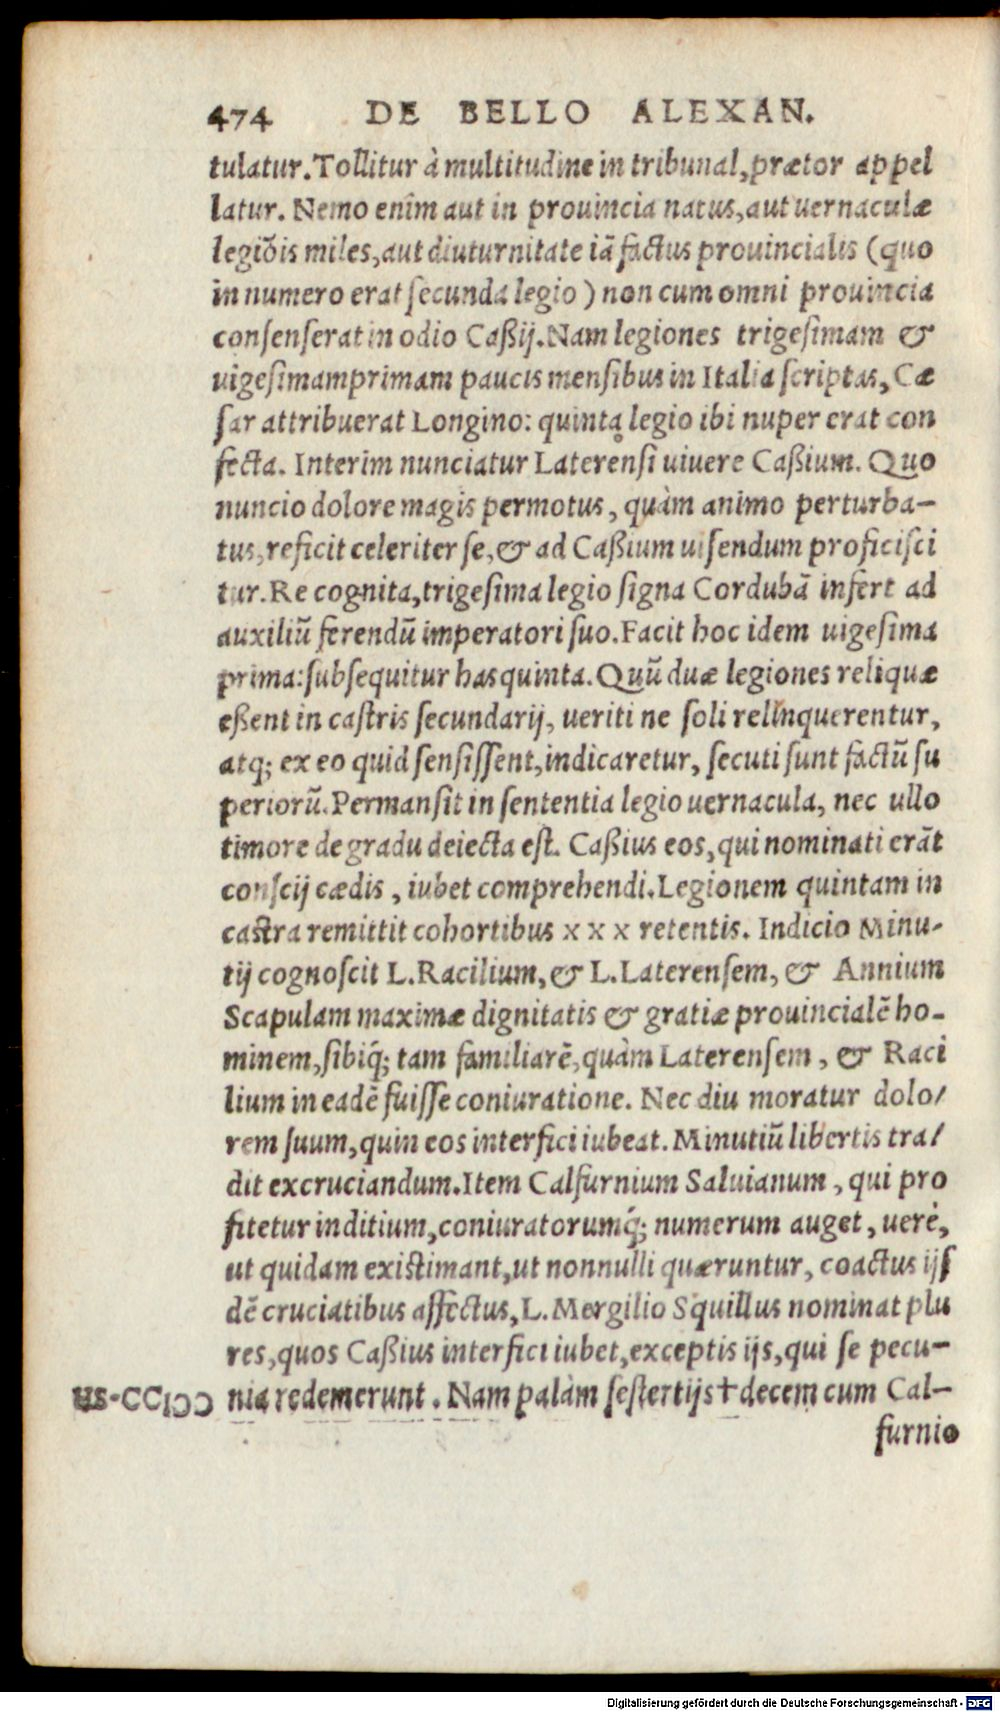 474 DE BELLO ALEXAN.
tulatur. Tollitur à multitudine in tribunal, prætor appel
latur. Nemo enim aut in prouincia natus, aut uernaculæ
legiõis miles, aut diuturnitate iã factus prouincialis (quo
in numero erat secunda legio) non cum omni prouincia
consenserat in odio Caßij. Nam legiones trigesimam &
uigesimamprimam paucis mensibus in Italia scriptas, Cæ
sar attribuerat Longino: quinta legio ibi nuper erat con
fecta. Interim nunciatur Laterensi uiuere Caßium. Quo
nuncio dolore magis permotus, quàm animo perturba-
tus, reficit celeriter se, & ad Caßium uisendum proficisci
tur. Re cognita, trigesima legio signa Cordubã infert ad
auxiliũ ferendũ imperatori suo. Facit hoc idem uigesima
prima: subsequitur has quinta. Quũ duæ legiones reliquæ
eßent in castris secundarij, ueriti ne soli relinquerentur,
atq; ex eo quid sensissent, indicaretur, secuti sunt factũ su
periorũ. Permansit in sententia legio uernacula, nec ullo
timore de gradu deiecta est. Caßius eos, qui nominati erãt
conscij cædis, iubet comprehendi. Legionem quintam in
castra remittit cohortibus x x x retentis. Indicio Minu-
tij cognoscit L. Racilium, & L. Laterensem, & Annium
Scapulam maximæ dignitatis & gratiæ prouincialẽ ho-
minem, sibiq́; tam familiarẽ, quàm Laterensem, & Raci
lium in eadẽ fuisse coniuratione. Nec diu moratur dolo/
rem suum, quin eos interfici iubeat. Minutiũ libertis tra/
dit excruciandum. Item Calfurnium Saluianum, qui pro
fitetur inditium, coniuratorumq́; numerum auget, uerè,
ut quidam existimant, ut nonnulli quæruntur, coactus ijs
dẽ cruciatibus affectus, L. Mergilio Squillus nominat plu
res, quos Caßius interfici iubet, exceptis ijs, qui se pecu-
HS-CCIↃↃ nia redemerunt. Nam palàm sestertijs † decem cum Cal-
furnio
Digitalisierung gefördert durch die Deutsche Forschungsgemeinschaft - DFG